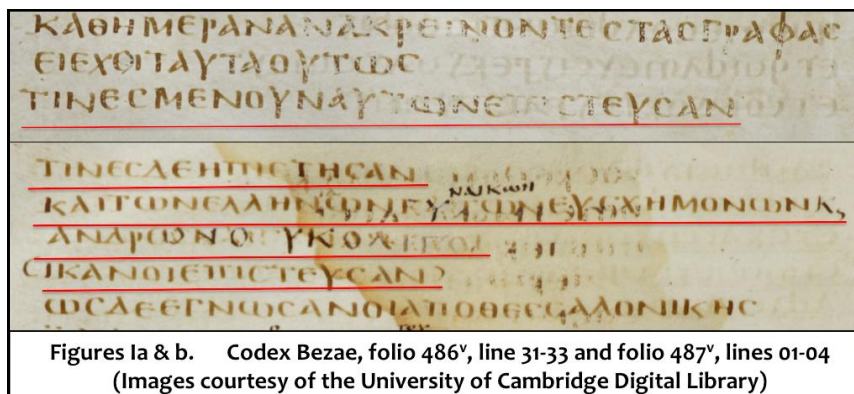 ΚΑΘΗΜΕΡΑΝΑΝΑΚΡΕΙΝΟΝΤΕϹΤΑϹΓΡΑΦΑϹ
ΕΙΕΧΟΙΤΑΥΤΑΟΥΤΩϹ
ΤΙΝΕϹΜΕΝΟΥΝΑΥΤΩΝΕΠΙϹΤΕΥϹΑΝ
ΤΙΝΕϹΔΕΗΠΙϹΤΗϹΑΝ
ΝΑΙΚΩΝ
ΚΑΙΤΩΝΕΛΛΗΝΩΝΓΥΤΩΝΕΥϹΧΗΜΟΝΩΝΚ,
ΑΝΔΡΩΝΟΥΚΟΛΙΓΟΙ
(ΙΚΑΝΟΙΕΠΙϹΤΕΥϹΑΝ)
ΩϹΔΕΕΓΝΩϹΑΝΟΙΑΠΟΘΕϹϹΑΛΟΝΙΚΗϹ
Figures Ia & b. Codex Bezae, folio 486ᵛ, line 31-33 and folio 487ᵛ, lines 01-04
(Images courtesy of the University of Cambridge Digital Library)